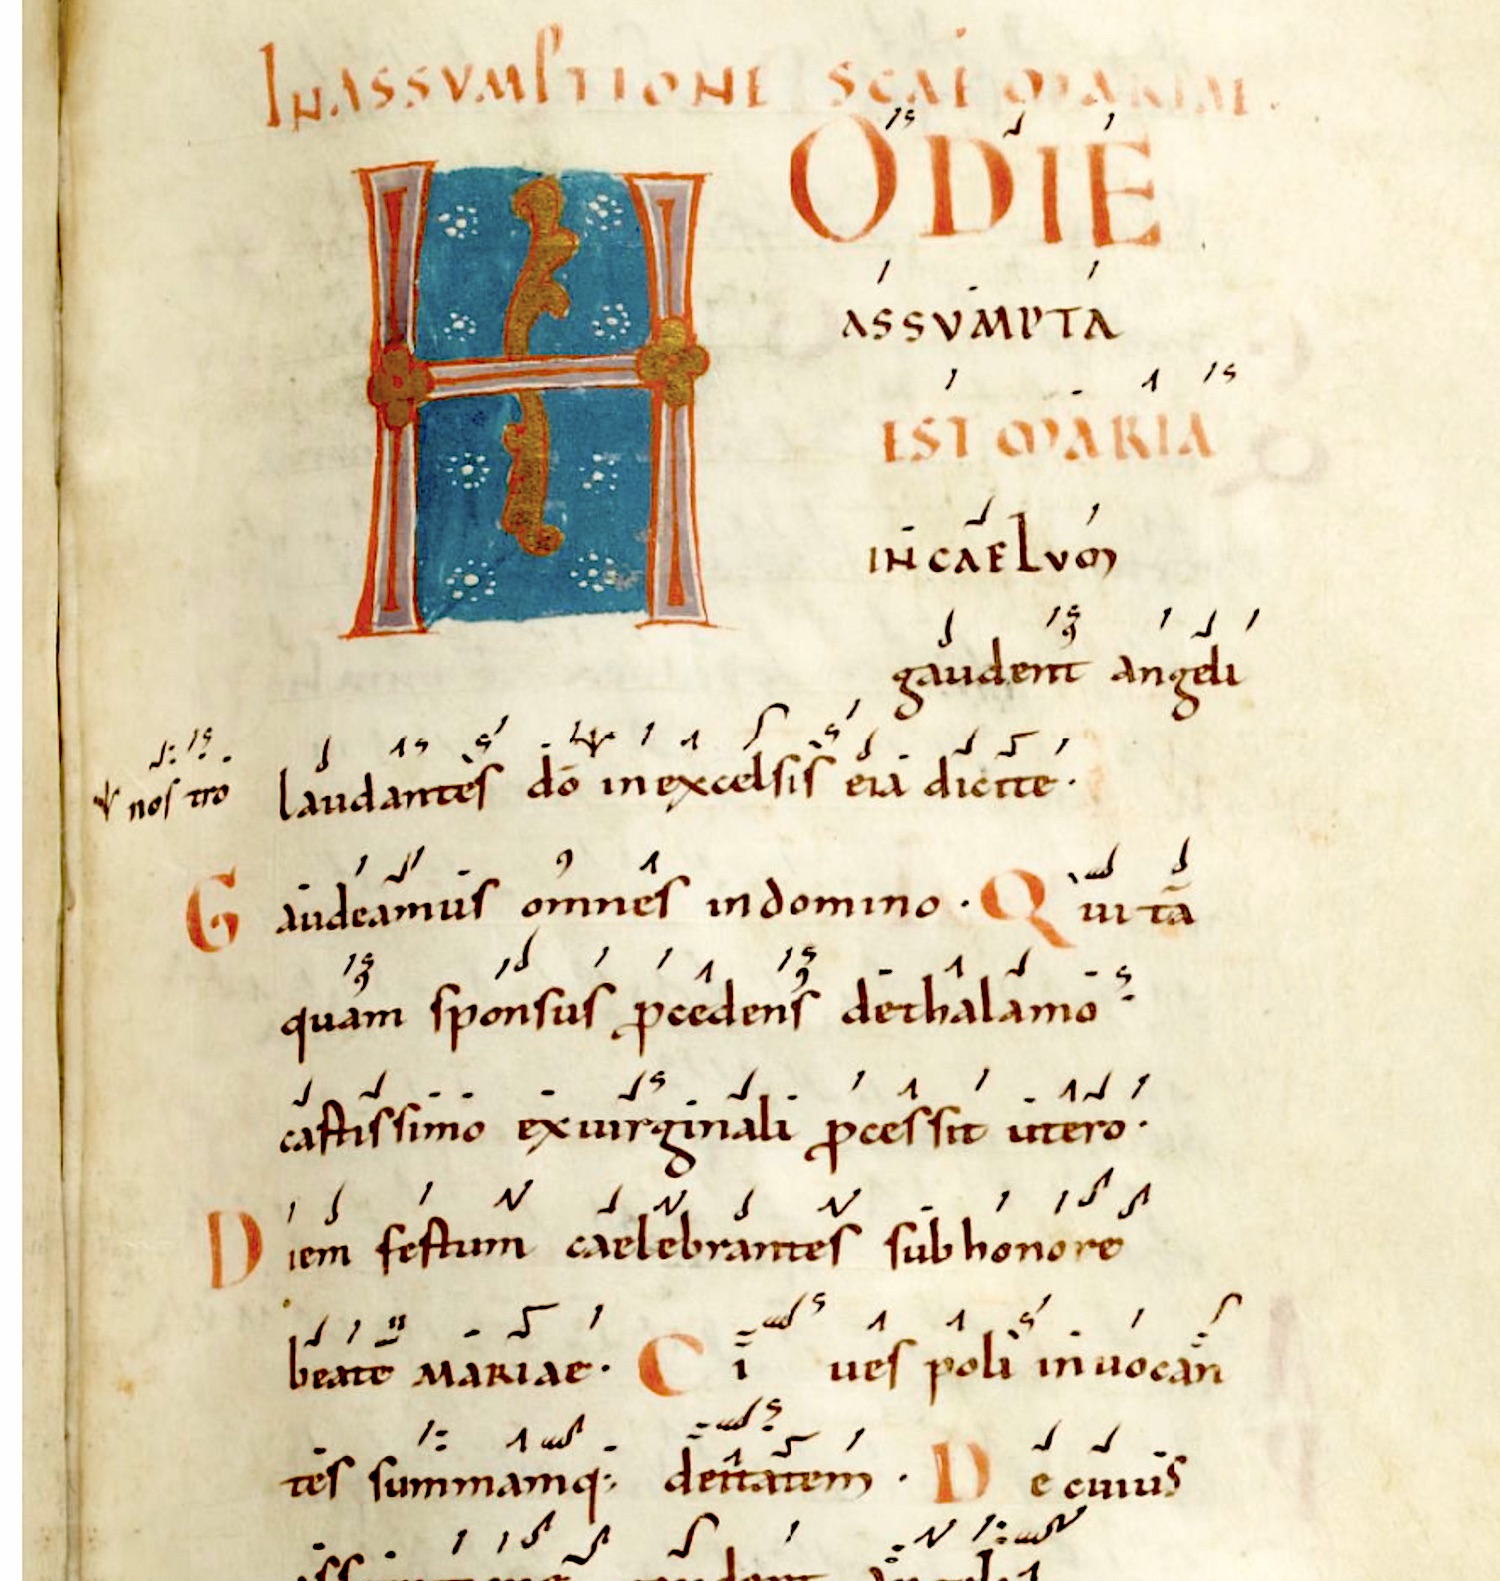 INASSVMPTIONE SCAE MARIAE.
HODIE
ASSVMPTA
EST MARIA
INCAELVM
gaudent angeli
nostro laudantes dō inexcelsis eia dicite.
Gaudeamus omnes indomino. Qui tā
quam sponsus ꝓcedens dethalamo
castissimo exuirginali ꝓcessit utero.
Diem festum caelebrantes subhonore
beate MARIAE. Ciues poli inuocan
tes summamq; deitatem. Decuius